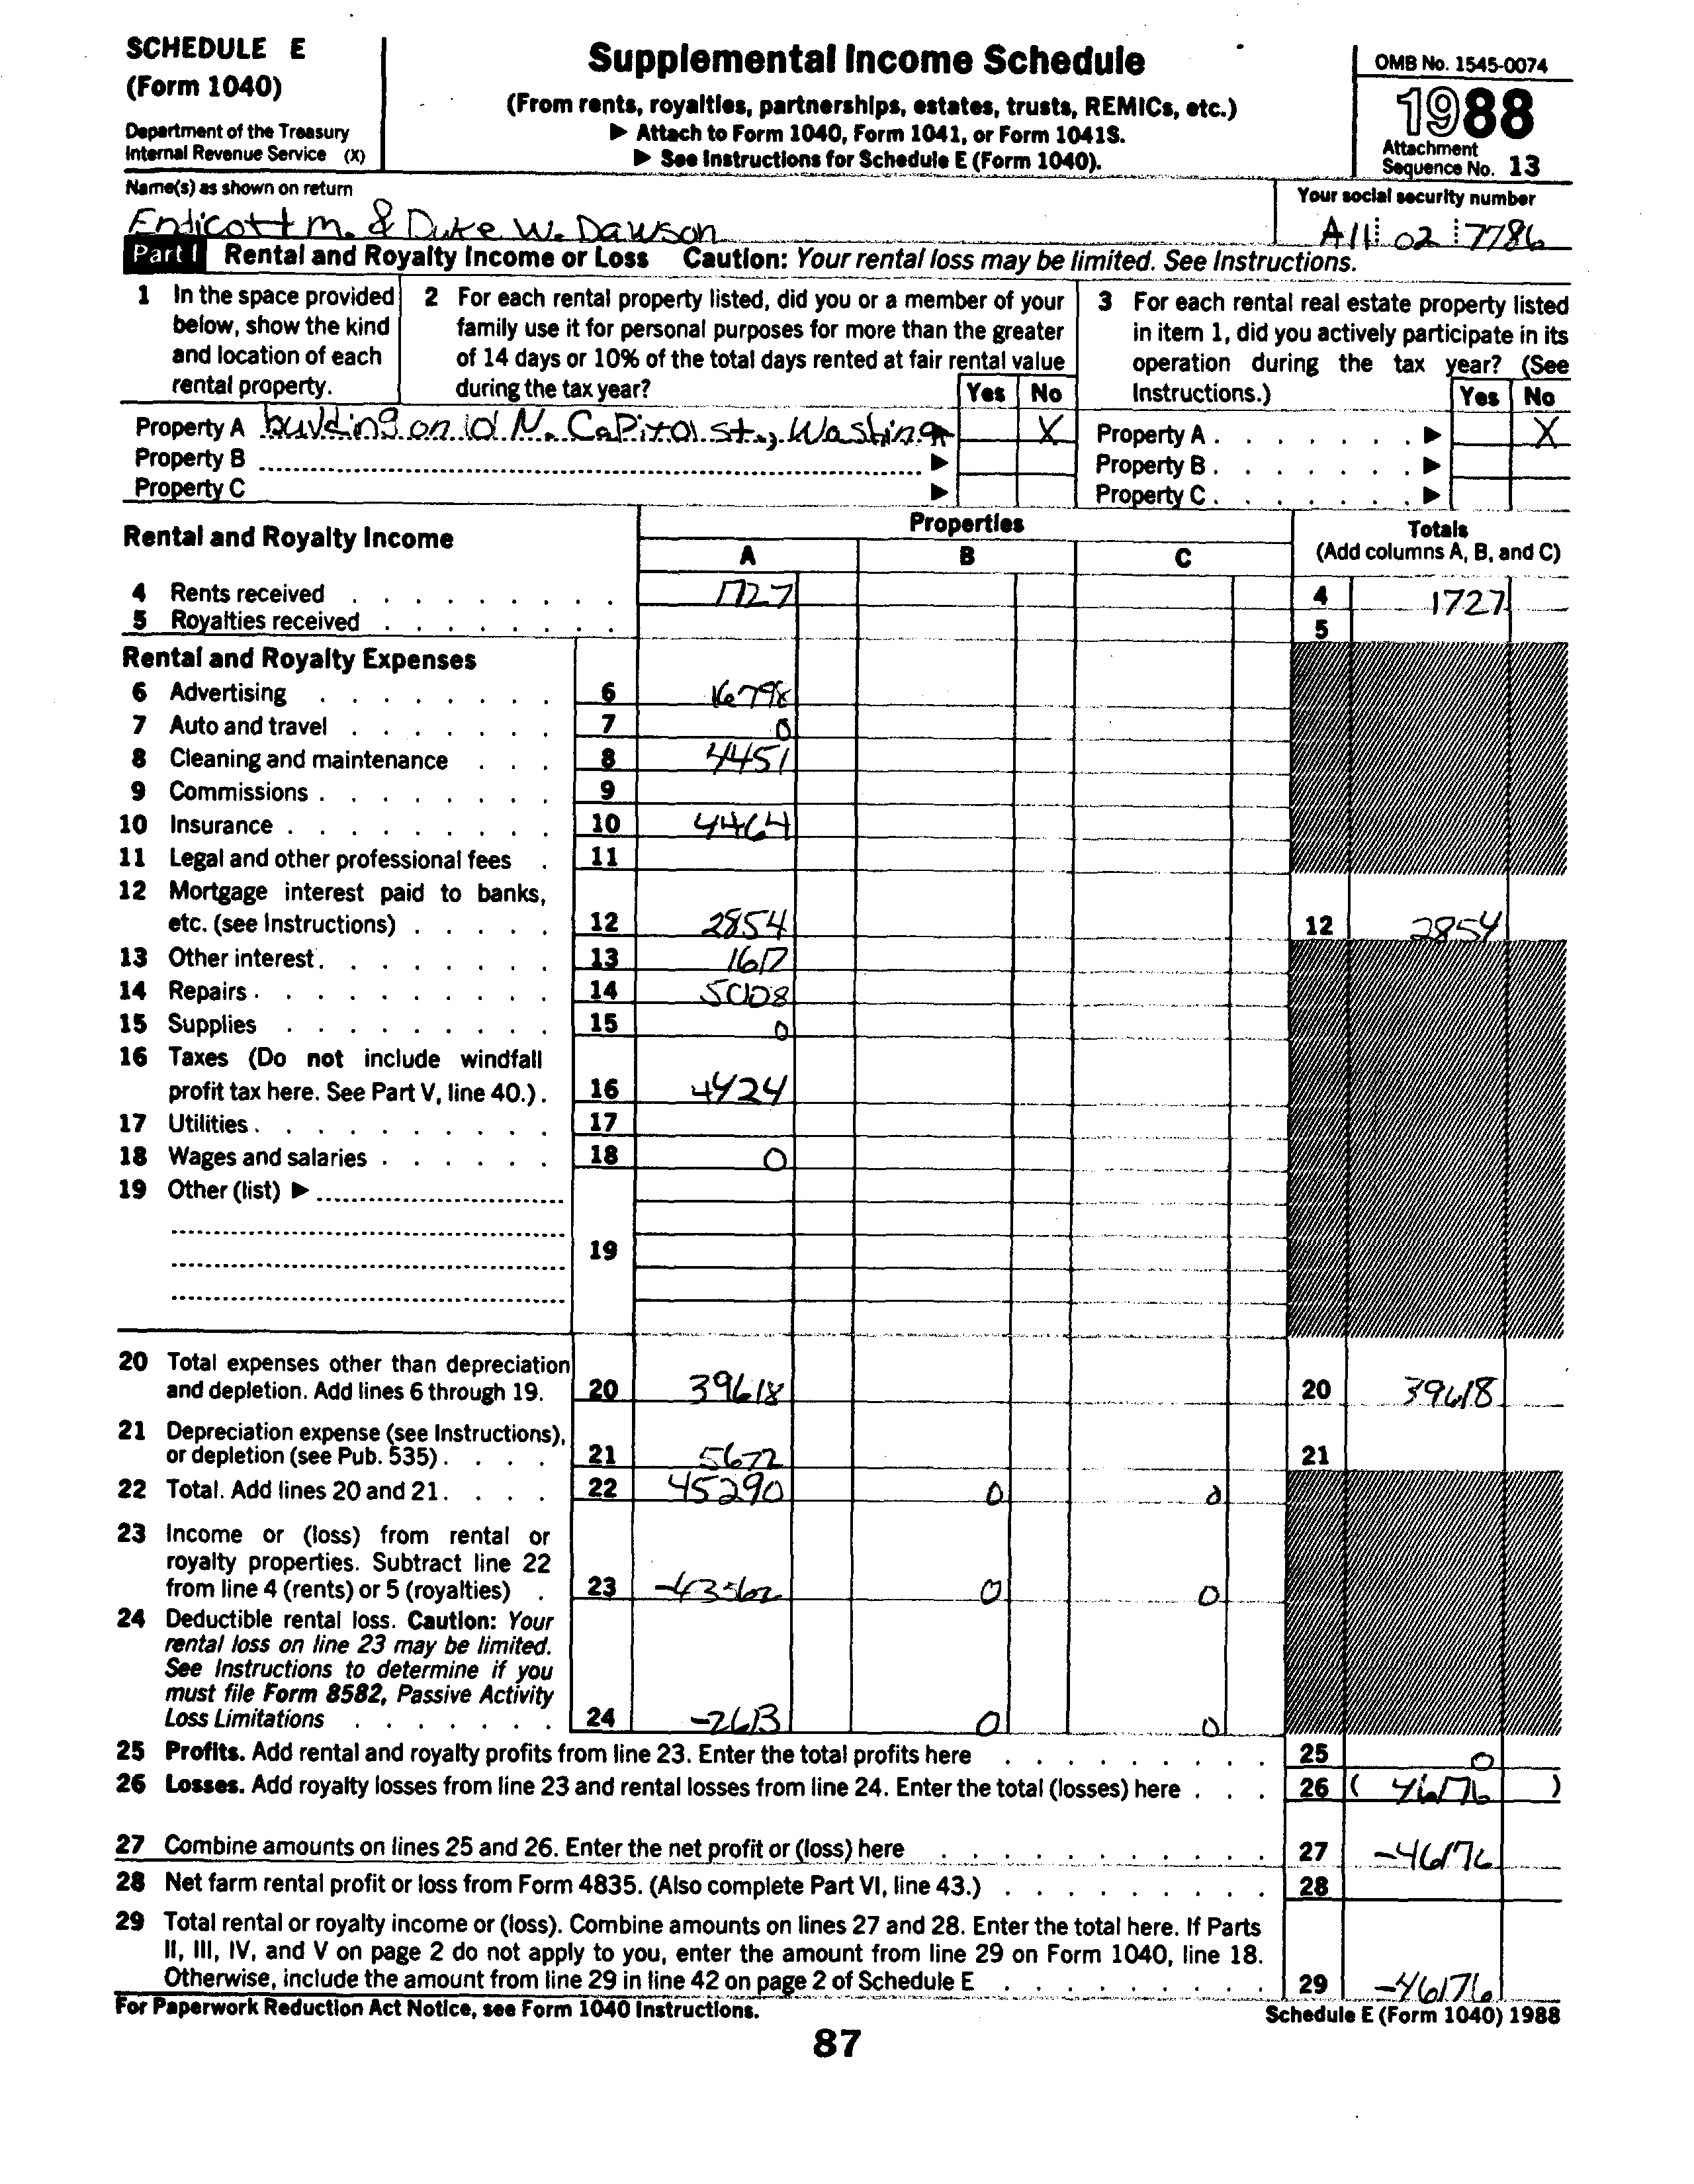 SCHEDULE E
(Form 1040)
Department of the Treasury
Internal Revenue Service (X)
Supplemental Income Schedule
(From rents, royalties, partnerships, estates, trusts, REMICs, etc.)
▶ Attach to Form 1040, Form 1041, or Form 1041S.
▶ See Instructions for Schedule E (Form 1040).
OMB No. 1545-0074
1988
Attachment
Sequence No. 13
Name(s) as shown on return
Endicott M. & Duke W. Dawson
Your social security number
A11 02 7786
Part I Rental and Royalty Income or Loss Caution: Your rental loss may be limited. See Instructions.
1 In the space provided below, show the kind and location of each rental property.
2 For each rental property listed, did you or a member of your family use it for personal purposes for more than the greater of 14 days or 10% of the total days rented at fair rental value during the tax year? Yes No
3 For each rental real estate property listed in item 1, did you actively participate in its operation during the tax year? (See Instructions.) Yes No
Property A building on N. Capitol st., X Property A . . . . . . . ▶ X
Property B ▶ Property B . . . . . . . ▶
Property C ▶ Property C . . . . . . . ▶
Rental and Royalty Income
Properties
A B C
Totals
(Add columns A, B, and C)
4 Rents received 1727 4 1727
5 Royalties received 5
Rental and Royalty Expenses
6 Advertising 6 16798
7 Auto and travel 7 0
8 Cleaning and maintenance 8 4451
9 Commissions 9
10 Insurance 10 4464
11 Legal and other professional fees 11
12 Mortgage interest paid to banks,
etc. (see Instructions) 12 2854 12 2854
13 Other interest 13 1617
14 Repairs 14 5008
15 Supplies 15 0
16 Taxes (Do not include windfall
profit tax here. See Part V, line 40.) 16 4424
17 Utilities 17
18 Wages and salaries 18 0
19 Other (list) ▶
19
20 Total expenses other than depreciation
and depletion. Add lines 6 through 19. 20 39618 20 39618
21 Depreciation expense (see Instructions),
or depletion (see Pub. 535) 21 5672 21
22 Total. Add lines 20 and 21 22 45290 0 0
23 Income or (loss) from rental or
royalty properties. Subtract line 22
from line 4 (rents) or 5 (royalties) 23 -43562 0 0
24 Deductible rental loss. Caution: Your
rental loss on line 23 may be limited.
See Instructions to determine if you
must file Form 8582, Passive Activity
Loss Limitations 24 -2613 0 0
25 Profits. Add rental and royalty profits from line 23. Enter the total profits here 25 0
26 Losses. Add royalty losses from line 23 and rental losses from line 24. Enter the total (losses) here 26 ( 46176 )
27 Combine amounts on lines 25 and 26. Enter the net profit or (loss) here 27 -46176
28 Net farm rental profit or loss from Form 4835. (Also complete Part VI, line 43.) 28
29 Total rental or royalty income or (loss). Combine amounts on lines 27 and 28. Enter the total here. If Parts
II, III, IV, and V on page 2 do not apply to you, enter the amount from line 29 on Form 1040, line 18.
Otherwise, include the amount from line 29 in line 42 on page 2 of Schedule E 29 -46176
For Paperwork Reduction Act Notice, see Form 1040 Instructions. Schedule E (Form 1040) 1988
87